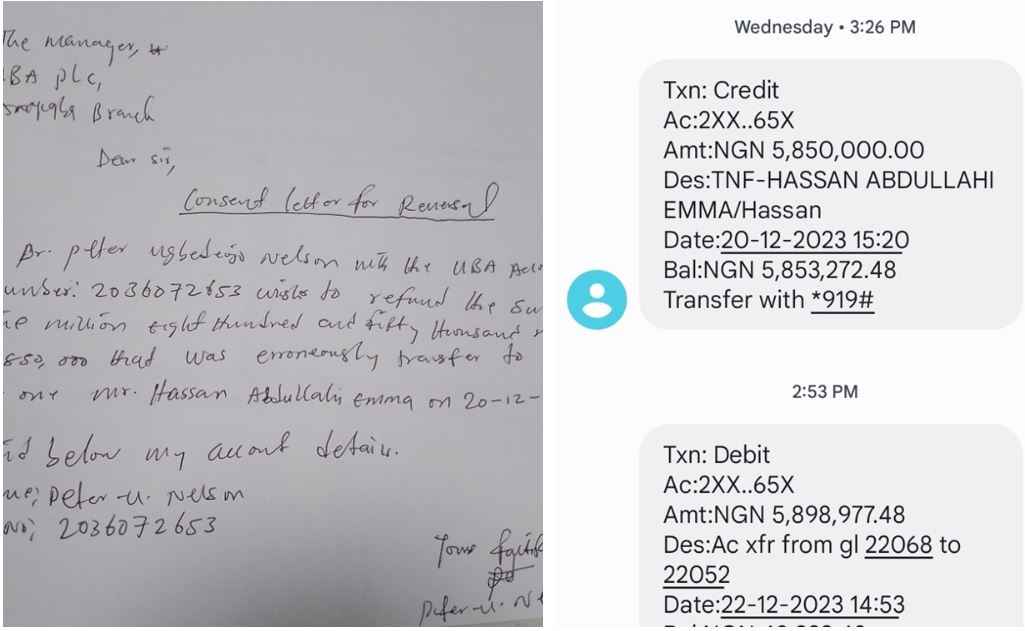 The manager,
BA plc,
Branch
Dear sir,
Consent letter for Reversal
Peter Ugbedeojo Nelson with the UBA
2036072653 wishes to refund the
million eight Hundred and fifty thousand
850,000 that was erroneously transfer to
one Mr. Hassan Abdullahi Emma on 20-12-
below my account details.
Peter U. Nelson
No; 2036072653
Yours
Peter U.
Wednesday • 3:26 PM
Txn: Credit
Ac:2XX..65X
Amt:NGN 5,850,000.00
Des:TNF-HASSAN ABDULLAHI
EMMA/Hassan
Date:20-12-2023 15:20
Bal:NGN 5,853,272.48
Transfer with *919#
2:53 PM
Txn: Debit
Ac:2XX..65X
Amt:NGN 5,898,977.48
Des:Ac xfr from gl 22068 to
22052
Date:22-12-2023 14:53